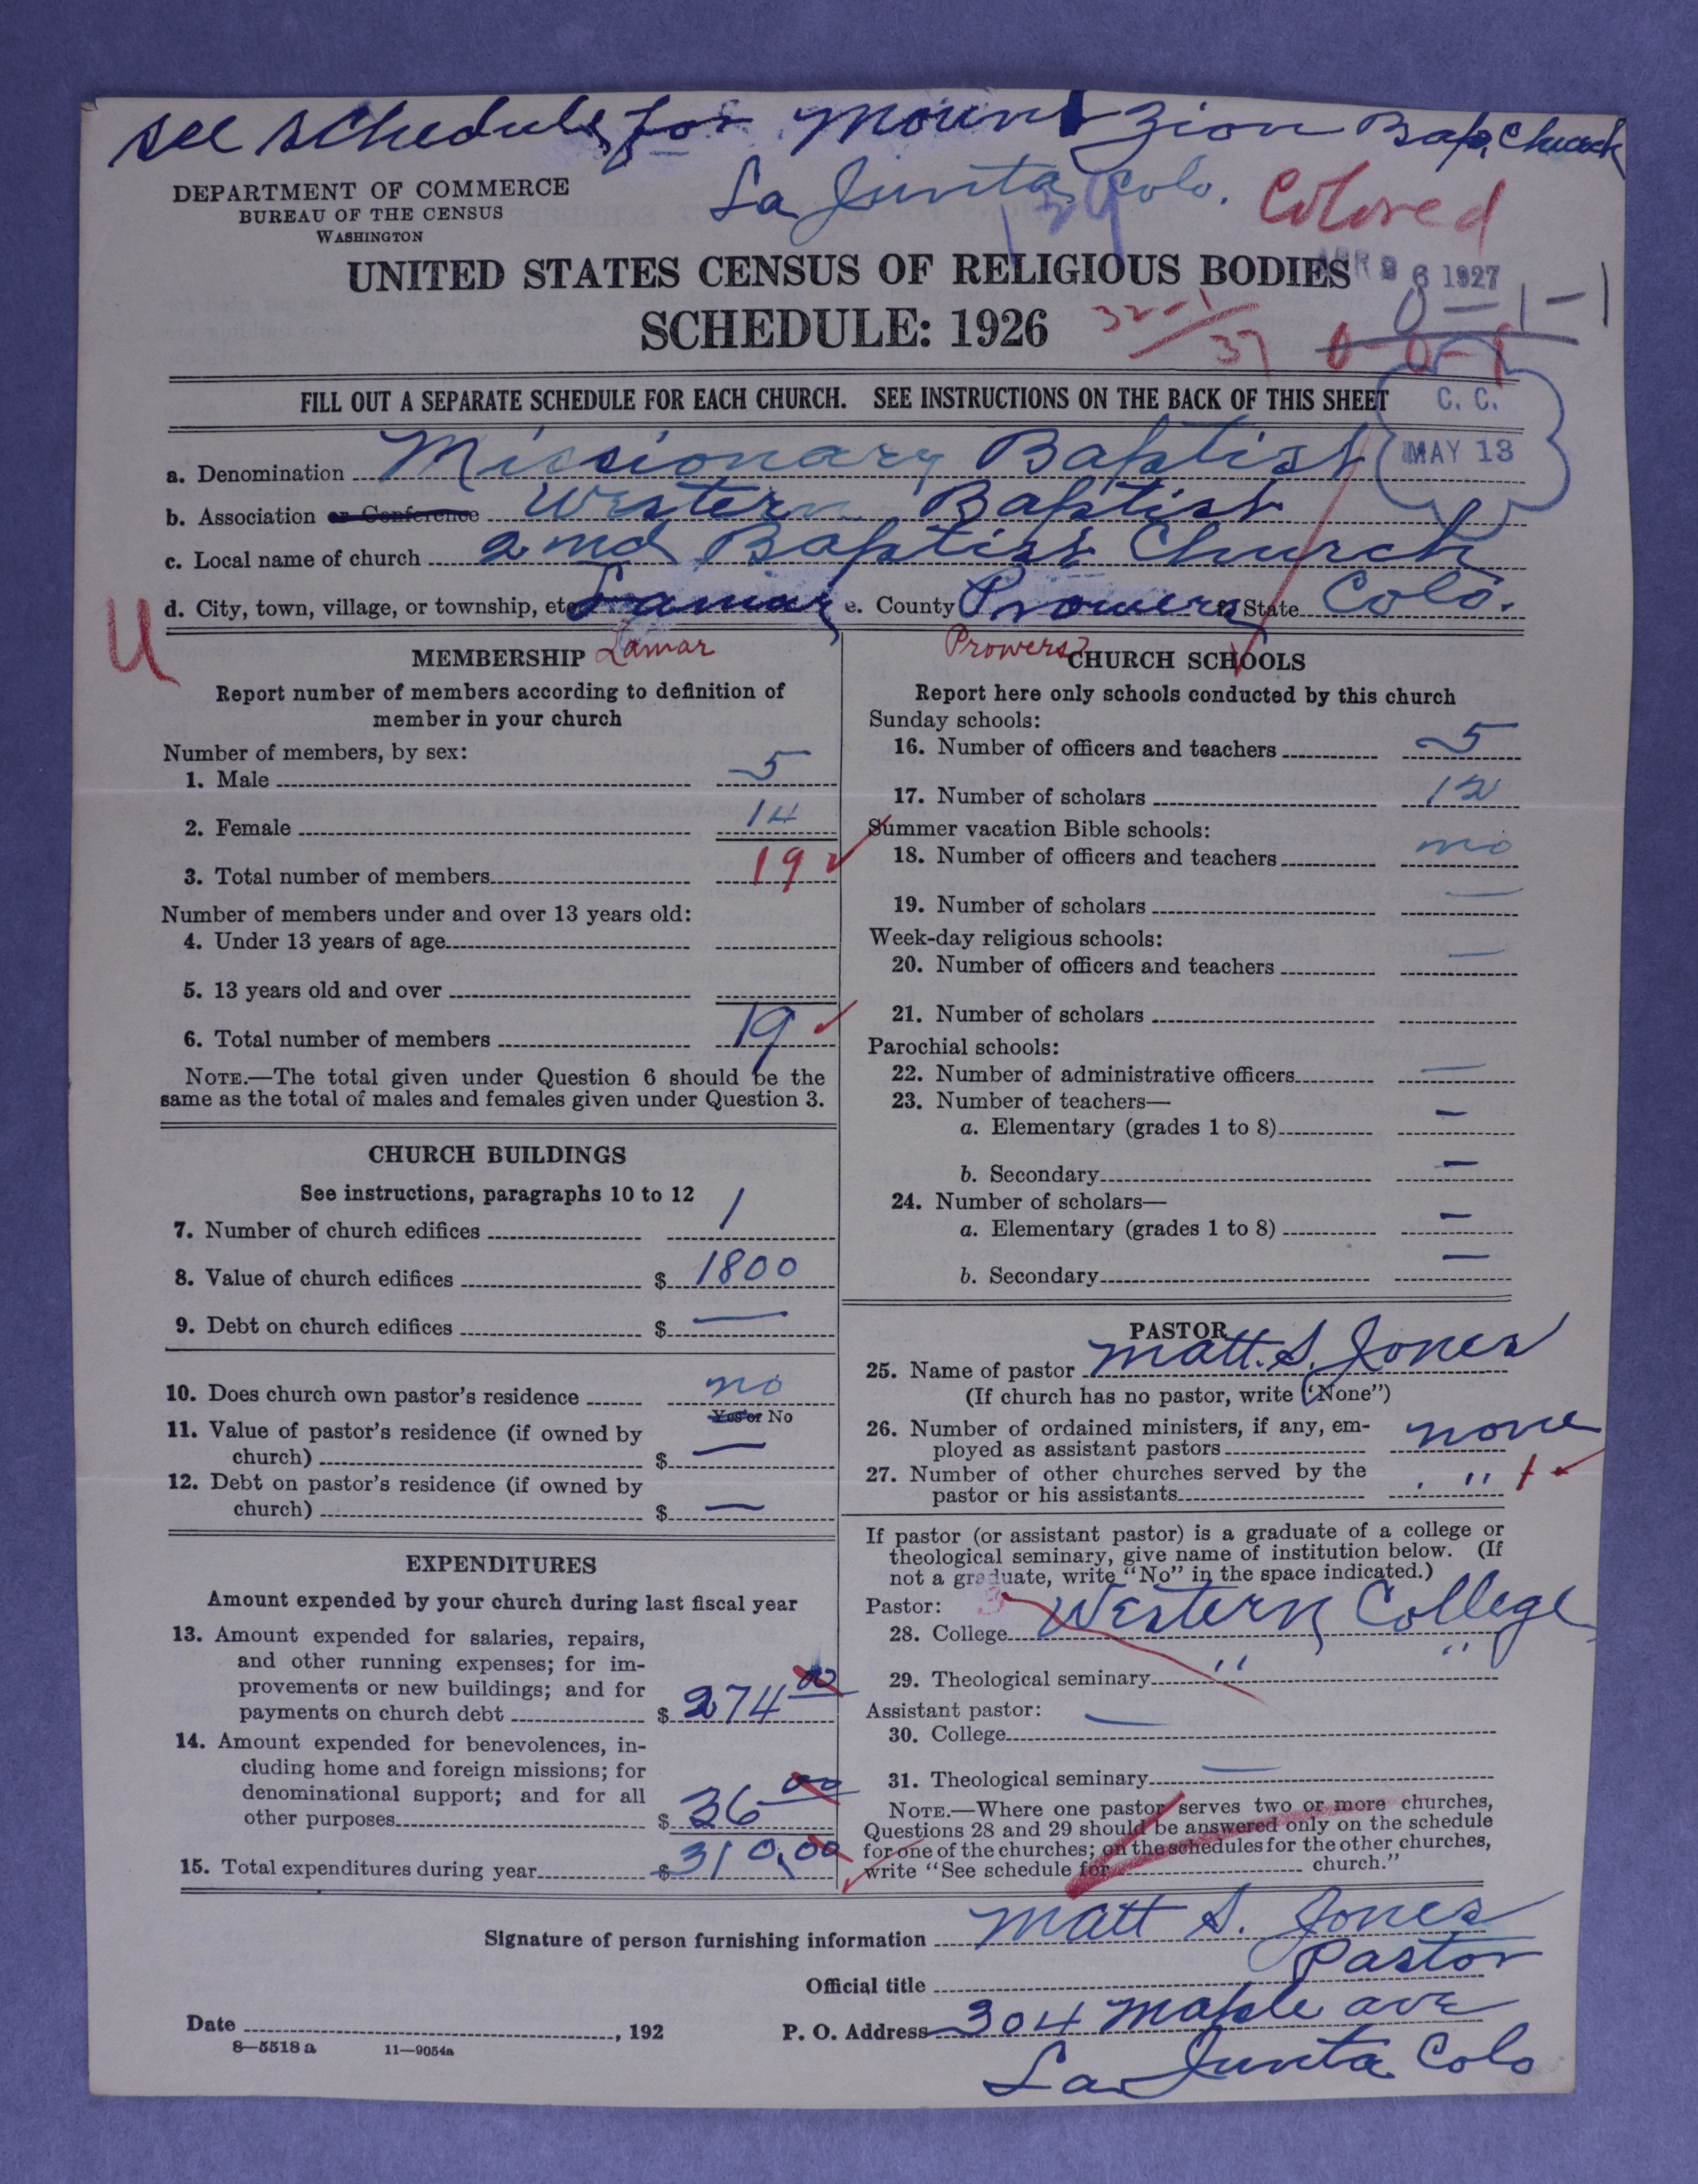 see schedule for Mount Zion Bap. Church
La Junta Colo.
Colored
DEPARTMENT OF COMMERCE
BUREAU OF THE CENSUS
WASHINGTON
139
APR 26 1927
UNITED STATES CENSUS OF RELIGIOUS BODIES
SCHEDULE: 1926
32-1
37
0-1-1
0-0-1
FILL OUT A SEPARATE SCHEDULE FOR EACH CHURCH. SEE INSTRUCTIONS ON THE BACK OF THIS SHEET
C. C.
MAY 13
a. Denomination Missionary Baptist
b. Association or Conference Western Baptist
c. Local name of church 2nd Baptist Church
d. City, town, village, or township, etc. Lamar e. County Prowers f. State Colo.
U
Lamar
Prowers
MEMBERSHIP
Report number of members according to definition of
member in your church
Number of members, by sex:
1. Male 5
2. Female 14
3. Total number of members 19
Number of members under and over 13 years old:
4. Under 13 years of age
5. 13 years old and over
6. Total number of members 19
NOTE.—The total given under Question 6 should be the
same as the total of males and females given under Question 3.
CHURCH BUILDINGS
See instructions, paragraphs 10 to 12
7. Number of church edifices 1
8. Value of church edifices $ 1800
9. Debt on church edifices $ —
10. Does church own pastor's residence no
Yes or No
11. Value of pastor's residence (if owned by
church) $ —
12. Debt on pastor's residence (if owned by
church) $ —
EXPENDITURES
Amount expended by your church during last fiscal year
13. Amount expended for salaries, repairs,
and other running expenses; for im-
provements or new buildings; and for
payments on church debt $ 274 00
14. Amount expended for benevolences, in-
cluding home and foreign missions; for
denominational support; and for all
other purposes $ 36 00
15. Total expenditures during year $ 310.00
CHURCH SCHOOLS
Report here only schools conducted by this church
Sunday schools:
16. Number of officers and teachers 5
17. Number of scholars 12
Summer vacation Bible schools:
18. Number of officers and teachers no
19. Number of scholars —
Week-day religious schools:
20. Number of officers and teachers —
21. Number of scholars
Parochial schools:
22. Number of administrative officers —
23. Number of teachers—
a. Elementary (grades 1 to 8) —
b. Secondary —
24. Number of scholars—
a. Elementary (grades 1 to 8) —
b. Secondary —
PASTOR
25. Name of pastor Matt. S. Jones
(If church has no pastor, write "None")
26. Number of ordained ministers, if any, em-
ployed as assistant pastors none
27. Number of other churches served by the
pastor or his assistants " 1
If pastor (or assistant pastor) is a graduate of a college or
theological seminary, give name of institution below. (If
not a graduate, write "No" in the space indicated.)
Pastor: 3
28. College Western College
29. Theological seminary " "
Assistant pastor:
30. College —
31. Theological seminary —
NOTE.—Where one pastor serves two or more churches,
Questions 28 and 29 should be answered only on the schedule
for one of the churches; on the schedules for the other churches,
write "See schedule for church."
Signature of person furnishing information Matt S. Jones
Official title Pastor
Date , 192
P. O. Address 304 Maple ave
La Junta Colo
8—5518 a 11—9054a